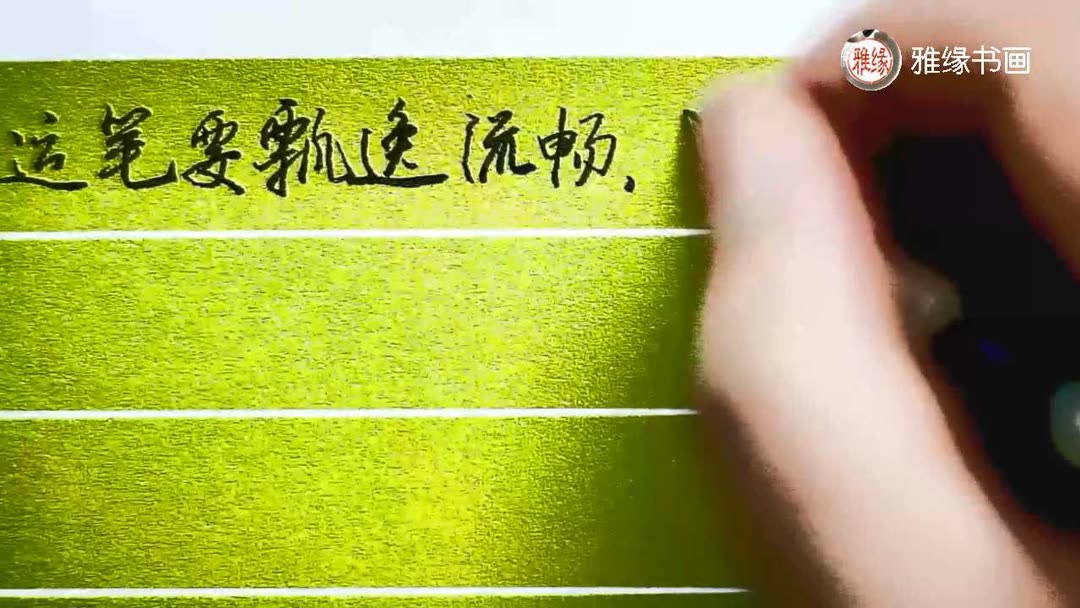 雅缘 雅缘书画
运笔要飘逸流畅，